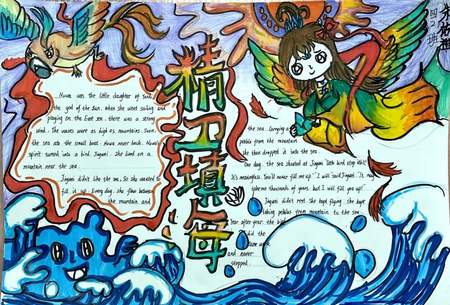 精卫填海
四、班
Nuwa was the little daughter of Sun,
the god of the Sun. When she went sailing and
playing on the East Sea, there was a strong
wind. The waves were as high as mountains. Soon,
the sea ate the small boat. Nuwa never back. Nuwa's
spirit turned into a bird Jingwei. She lived on a
mountain near the sea.
Jingwei didn't like the sea, so she wanted to
fill it up. Every day, she flew between
the mountain and
the sea. Carrying a
pebble from the mountain,
she then dropped it into the sea.
One day, the sea shouted at Jingwei, "Little bird stop it!
It's meaningless. You'll never fill me up." "I will," said Jingwei. "It may
take me thousands of years, but I will fill you up!"
Jingwei didn't rest. She kept flying. She kept
taking pebbles from mountain to the sea.
Year after year, the bird
did the
same work
and never
stopped.